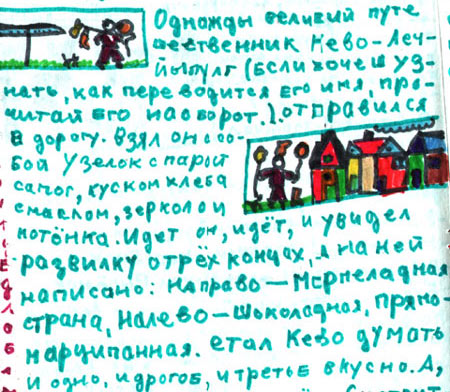 Однажды великий путе
шественник Кево-Леч-
йыпулг (Если хочеш уз-
нать, как переводится его имя, про-
читай его наоборот.). отправился
в дорогу. Взял он с со-
бой узелок с парой
сапог, куском хлеба
с маслом, зеркало и
котёнка. Идёт он, идёт, и увидел
развилку о трёх концах, а на ней
написано: Направо — Мармеладная
страна, налево — Шоколадная, прямо-
марципанная. стал Кево думать
и одно, и другое, и третье вкусно. А,